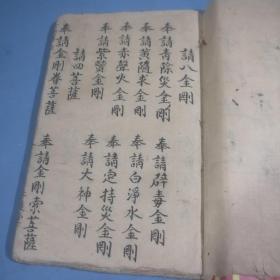 請八金剛
奉請青除災金剛
奉請辟毒金剛
奉請黃隨求金剛
奉請白淨水金剛
奉請赤聲火金剛
奉請定持災金剛
奉請紫賢金剛
奉請大神金剛
請四菩薩
奉請金剛眷菩薩
奉請金剛索菩薩